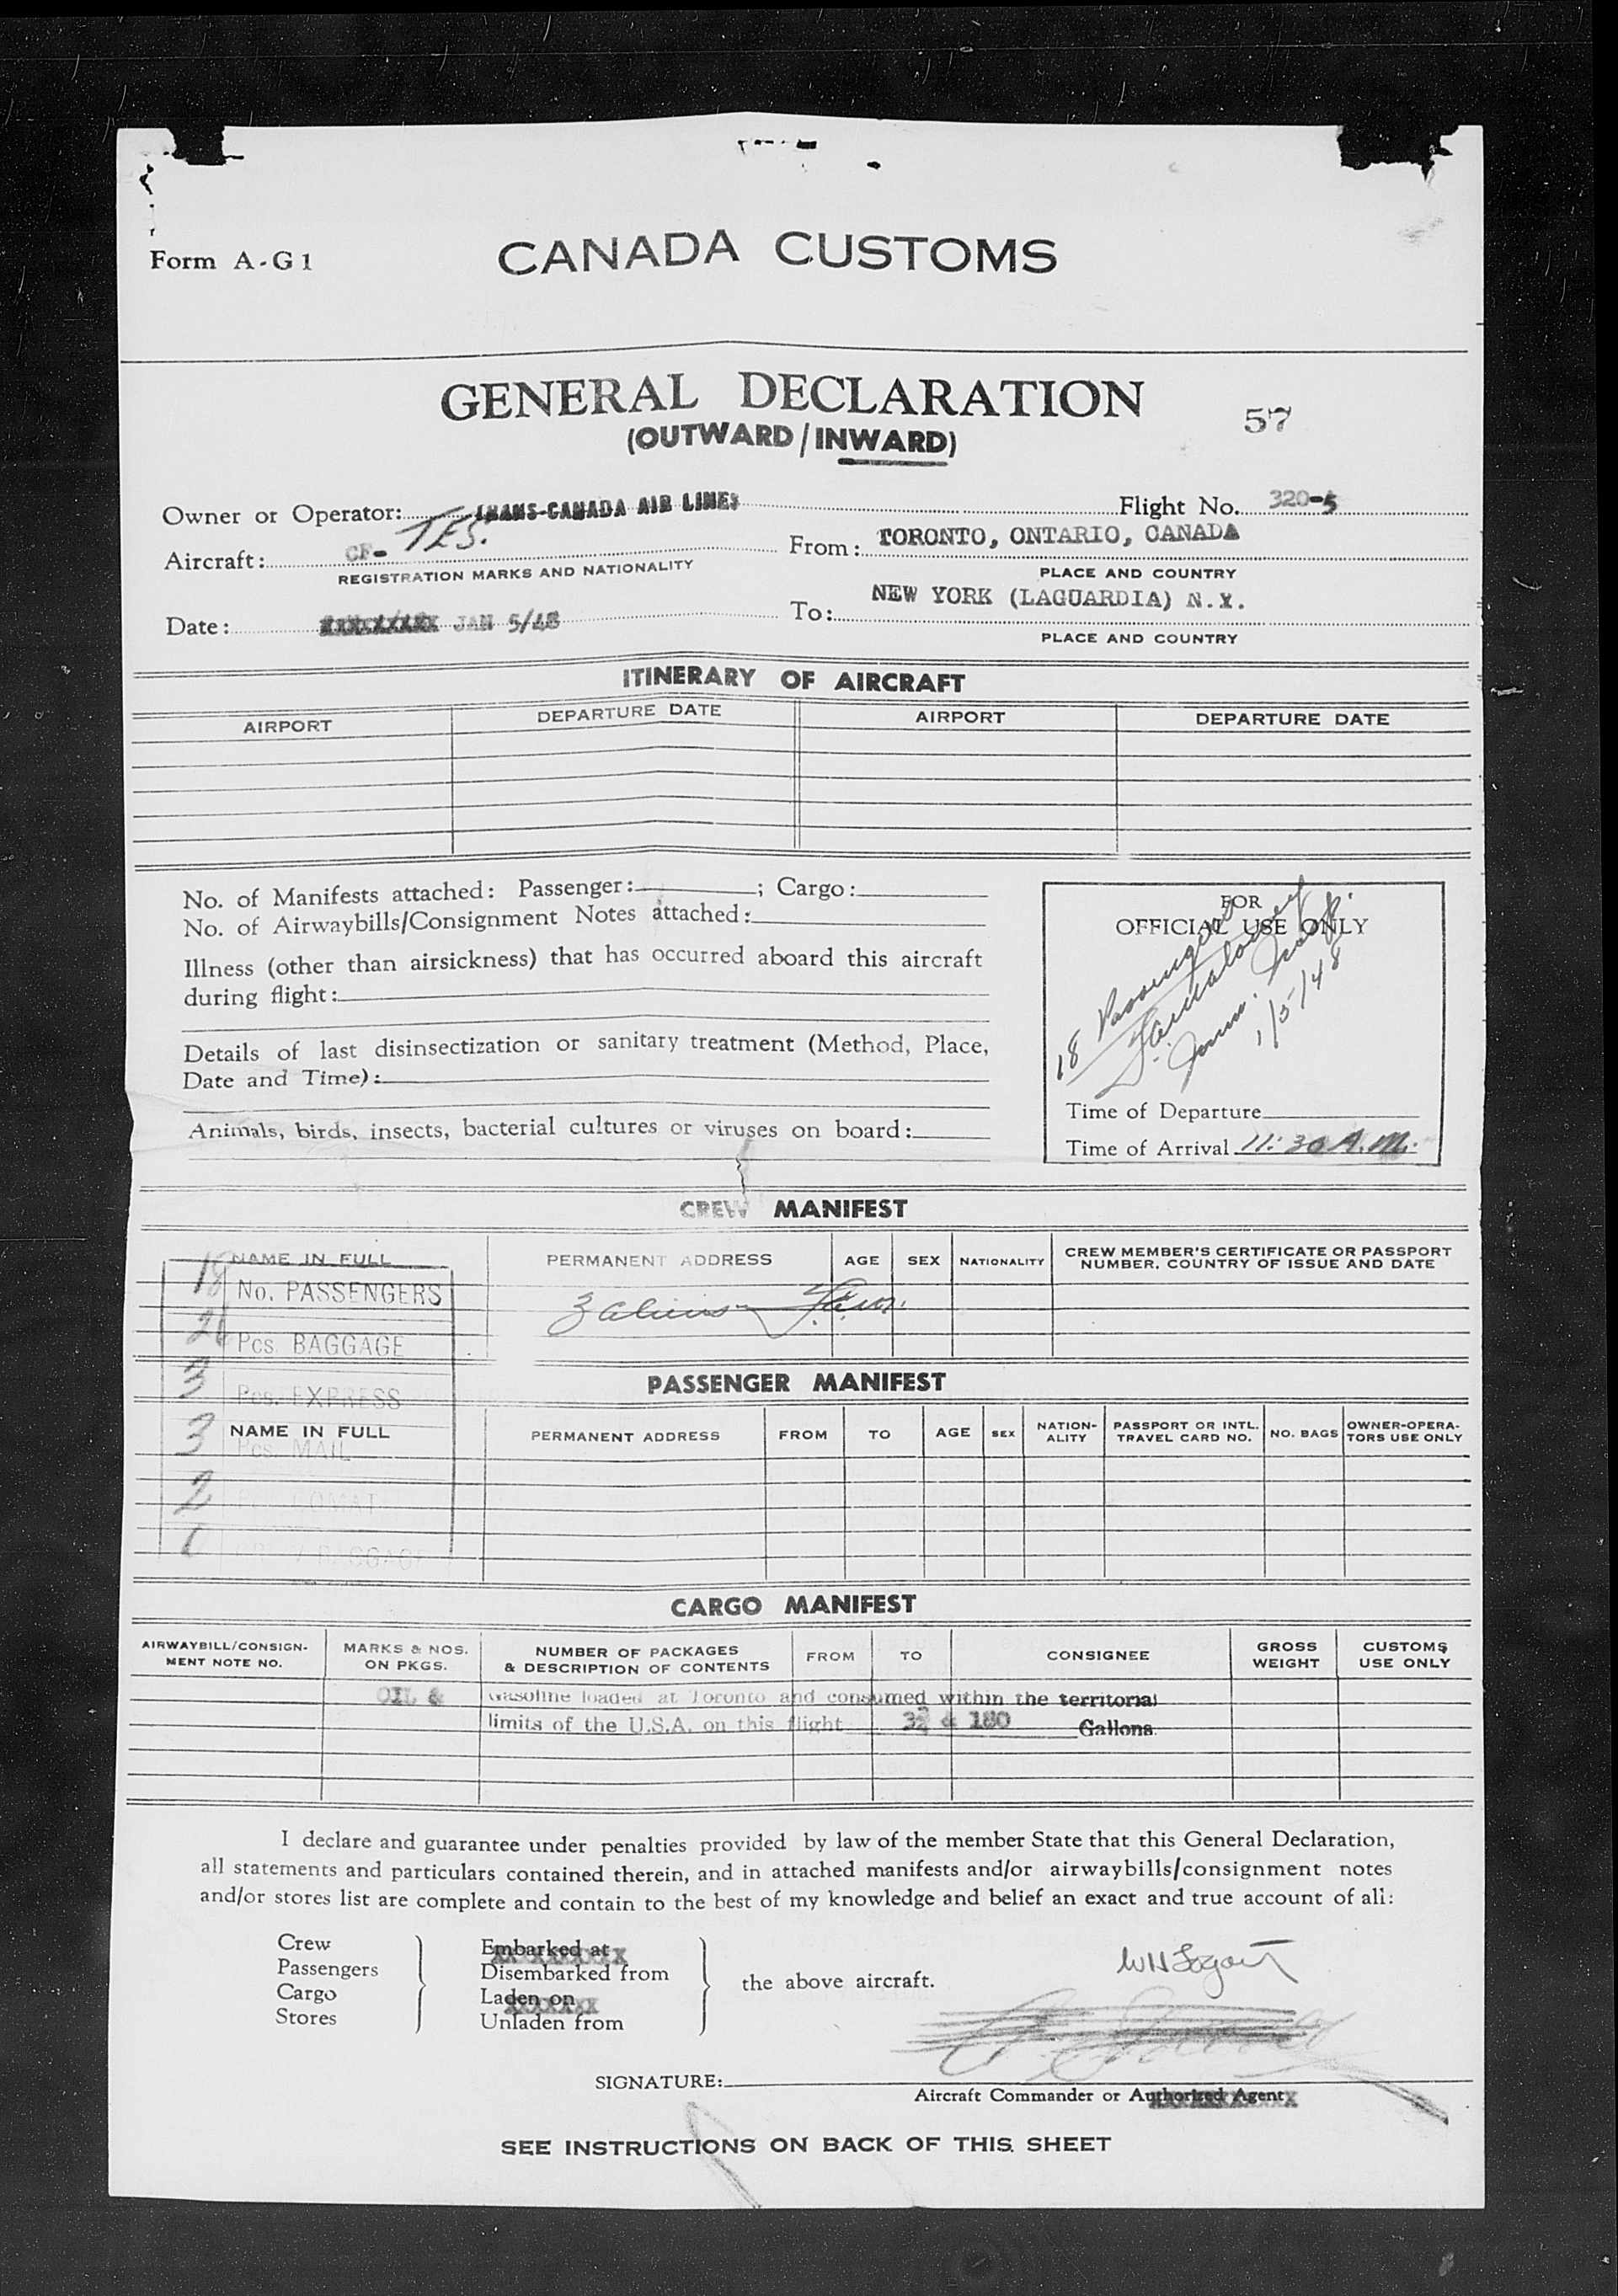 Form A-G1
CANADA CUSTOMS
GENERAL DECLARATION
57
(OUTWARD/INWARD)
Owner or Operator: TRANS-CANADA AIR LINES Flight No. 320-5
Aircraft: CF- TES. From: TORONTO, ONTARIO, CANADA
REGISTRATION MARKS AND NATIONALITY PLACE AND COUNTRY
Date: JAN 5/48 To: NEW YORK (LAGUARDIA) N.Y.
PLACE AND COUNTRY
ITINERARY OF AIRCRAFT
AIRPORT DEPARTURE DATE AIRPORT DEPARTURE DATE
No. of Manifests attached: Passenger: ; Cargo:
No. of Airwaybills/Consignment Notes attached:
Illness (other than airsickness) that has occurred aboard this aircraft
during flight:
Details of last disinsectization or sanitary treatment (Method, Place,
Date and Time):
Animals, birds, insects, bacterial cultures or viruses on board:
FOR
OFFICIAL USE ONLY
18 Passengers
1/5/48
Time of Departure
Time of Arrival 11:30 A.M.
CREW MANIFEST
NAME IN FULL PERMANENT ADDRESS AGE SEX NATIONALITY CREW MEMBER'S CERTIFICATE OR PASSPORT
NUMBER, COUNTRY OF ISSUE AND DATE
18 No. PASSENGERS
Pcs. BAGGAGE
3 Pcs. EXPRESS
3 Pcs. MAIL
2 COMAT
1 BAGGAGE
3 aliens
PASSENGER MANIFEST
NAME IN FULL PERMANENT ADDRESS FROM TO AGE SEX NATION-
ALITY PASSPORT OR INTL.
TRAVEL CARD NO. NO. BAGS OWNER-OPERA-
TORS USE ONLY
CARGO MANIFEST
AIRWAYBILL/CONSIGN-
MENT NOTE NO. MARKS & NOS.
ON PKGS. NUMBER OF PACKAGES
& DESCRIPTION OF CONTENTS FROM TO CONSIGNEE GROSS
WEIGHT CUSTOMS
USE ONLY
OIL & Gasoline loaded at Toronto and consumed within the territorial
limits of the U.S.A. on this flight & 180 Gallons.
I declare and guarantee under penalties provided by law of the member State that this General Declaration,
all statements and particulars contained therein, and in attached manifests and/or airwaybills/consignment notes
and/or stores list are complete and contain to the best of my knowledge and belief an exact and true account of all:
Crew
Passengers
Cargo
Stores
Embarked at
Disembarked from
Laden on
Unladen from
the above aircraft.
SIGNATURE:
Aircraft Commander or Authorized Agent
SEE INSTRUCTIONS ON BACK OF THIS SHEET